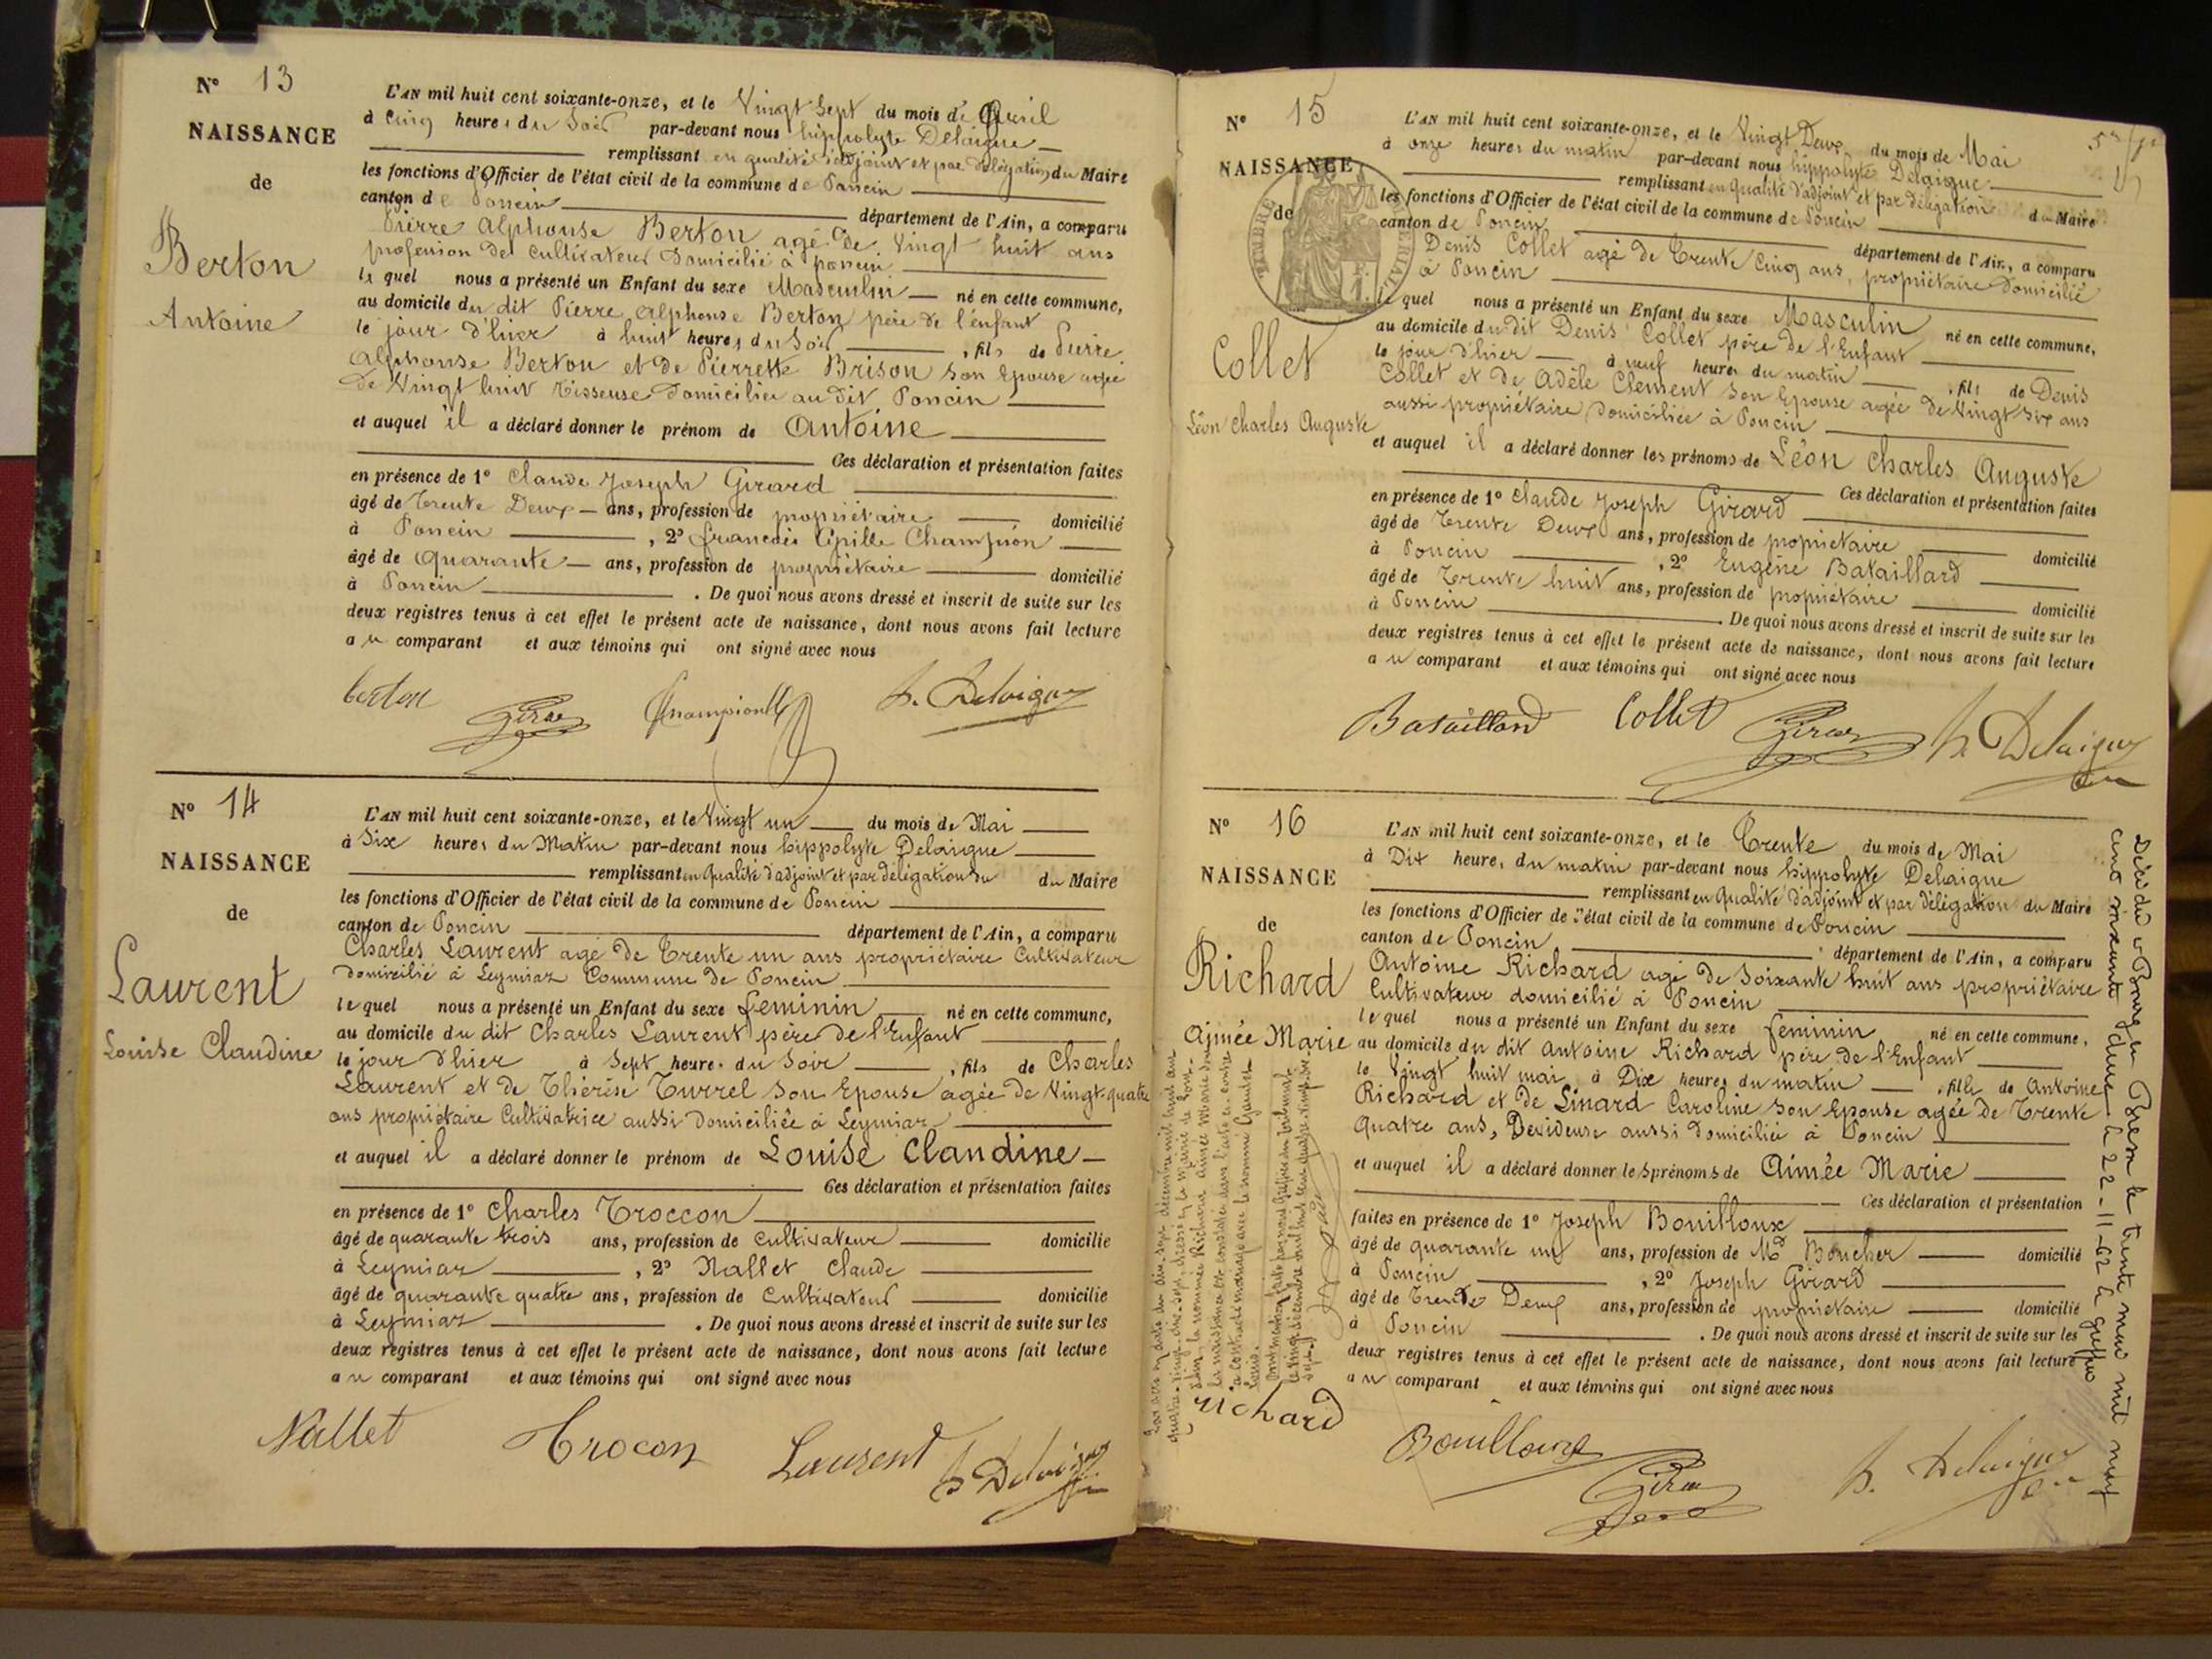 N° 13
NAISSANCE
de
Berton
Antoine
L'AN mil huit cent soixante-onze, et le Vingt Sept du mois de Avril
à Cinq heures du Soir par-devant nous hippolyte Delaigue
remplissant en qualité d'adjoint et par délégation du Maire
les fonctions d'Officier de l'état civil de la commune de Poncin
canton de Poncin département de l'Ain, a comparu
Pierre Alphonse Berton agé de Vingt huit ans
profession de Cultivateur domicilié à poncin
le quel nous a présenté un Enfant du sexe Masculin né en cette commune,
au domicile du dit Pierre Alphonse Berton père de l'enfant
le jour d'hier à huit heures du Soir, fils de Pierre
Alphonse Berton et de Pierrette Brison son Epouse agée
de Vingt huit Tisseuse domiciliée au dit Poncin
et auquel il a déclaré donner le prénom de Antoine
Ces déclaration et présentation faites
en présence de 1° Claude Joseph Girard
âgé de Trente Deux ans, profession de propriétaire domicilié
à Poncin, 2° francois Champion
âgé de quarante ans, profession de propriétaire domicilié
à Poncin. De quoi nous avons dressé et inscrit de suite sur les
deux registres tenus à cet effet le présent acte de naissance, dont nous avons fait lecture
au comparant et aux témoins qui ont signé avec nous
berton Girar Championt h. Delaigue
N° 14
NAISSANCE
de
Laurent
Louise Claudine
L'AN mil huit cent soixante-onze, et le Vingt un du mois de Mai
à Six heures du Matin par-devant nous hippolyte Delaigue
remplissant en Qualité d'adjoint et par délégation du du Maire
les fonctions d'Officier de l'état civil de la commune de Poncin
canton de Poncin département de l'Ain, a comparu
Charles Laurent agé de Trente un ans propriétaire Cultivateur
domicilié à Leymiaz Commune de Poncin
le quel nous a présenté un Enfant du sexe feminin né en cette commune,
au domicile du dit Charles Laurent père de l'Enfant
le jour d'hier à Sept heures du Soir, fils de Charles
Laurent et de Thérèse Turrel son Epouse agée de Vingt-quatre
ans propriétaire Cultivatrice aussi domiciliée à Leymiaz
et auquel il a déclaré donner le prénom de Louise Claudine
Ces déclaration et présentation faites
en présence de 1° Charles Troccon
âgé de quarante trois ans, profession de cultivateur domicilié
à Leymiaz, 2° Nallet Claude
âgé de quarante quatre ans, profession de Cultivateur domicilié
à Leymiaz. De quoi nous avons dressé et inscrit de suite sur les
deux registres tenus à cet effet le présent acte de naissance, dont nous avons fait lecture
au comparant et aux témoins qui ont signé avec nous
Nallet Trocon Laurent h Delaigue
N° 15
NAISSANCE
de
Collet
Léon Charles Auguste
L'AN mil huit cent soixante-onze, et le Vingt Deux du mois de Mai
à onze heures du matin par-devant nous hippolyte Delaigue
remplissant en Qualité d'adjoint et par délégation du Maire
les fonctions d'Officier de l'état civil de la commune de Poncin
canton de Poncin département de l'Ain, a comparu
Denis Collet agé de Trente Cinq ans, propriétaire domicilié
à Poncin
le quel nous a présenté un Enfant du sexe Masculin né en cette commune,
au domicile du dit Denis Collet père de l'Enfant
le jour d'hier à neuf heures du matin, fils de Denis
Collet et de Adèle Clement son Epouse agée de Vingt six ans
aussi propriétaire domiciliée à Poncin
et auquel il a déclaré donner les prénoms de Léon Charles Auguste
Ces déclaration et présentation faites
en présence de 1° Claude Joseph Girard
âgé de Trente Deux ans, profession de propriétaire domicilié
à Poncin, 2° Eugène Bataillard
âgé de Trente huit ans, profession de propriétaire domicilié
à Poncin. De quoi nous avons dressé et inscrit de suite sur les
deux registres tenus à cet effet le présent acte de naissance, dont nous avons fait lecture
au comparant et aux témoins qui ont signé avec nous
Bataillard Collet Girar h Delaigue
N° 16
NAISSANCE
de
Richard
Aimée Marie
L'AN mil huit cent soixante-onze, et le Trente du mois de Mai
à Dix heures du matin par-devant nous hippolyte Delaigue
remplissant en Qualité d'adjoint et par délégation du Maire
les fonctions d'Officier de l'état civil de la commune de Poncin
canton de Poncin département de l'Ain, a comparu
Antoine Richard agé de Soixante huit ans propriétaire
Cultivateur domicilié à Poncin
le quel nous a présenté un Enfant du sexe feminin né en cette commune,
au domicile du dit Antoine Richard père de l'Enfant
le Vingt huit mai à Dix heures du matin, fille de Antoine
Richard et de Linard Caroline son Epouse agée de Trente
Quatre ans, Devideuse aussi domiciliée à Poncin
et auquel il a déclaré donner les prénoms de Aimée Marie
Ces déclaration et présentation
faites en présence de 1° Joseph Bouilloux
âgé de quarante un ans, profession de Md Boucher domicilié
à Poncin, 2° Joseph Girard
âgé de Trente Deux ans, profession de propriétaire domicilié
à Poncin. De quoi nous avons dressé et inscrit de suite sur les
deux registres tenus à cet effet le présent acte de naissance, dont nous avons fait lecture
au comparant et aux témoins qui ont signé avec nous
Richard Bouilloux Girar h. Delaigue
Bourg en Bresse le trente mars mil neuf
cent soixante deux le 22-11-62 le greffier